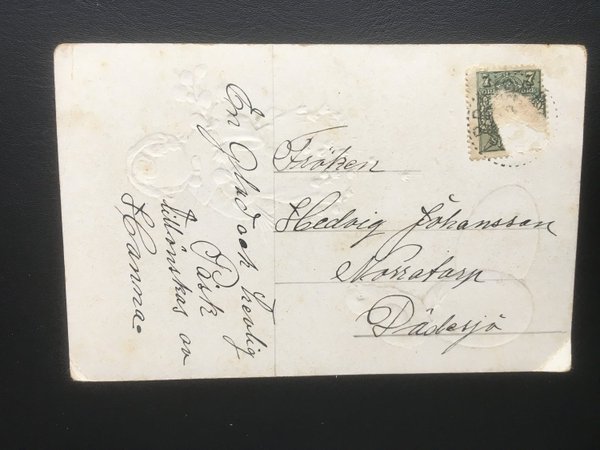 En Glad och trevlig
Påsk
tillönskas av
Hanna.
7 7
Fröken
Hedvig Johansson
Norratorp
Dädesjö